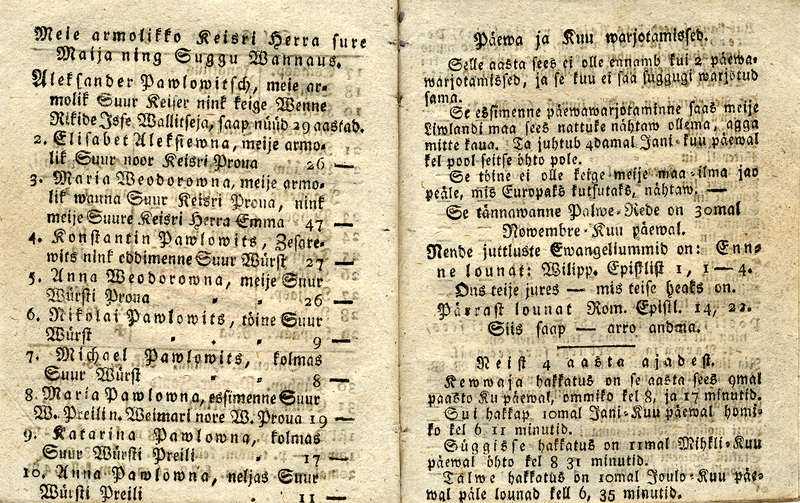 Meie armolikko Keisri Herra sure
Maija ning Suggu Wannaus.
Aleksander Pawlowitsch, meie ar-
molik Suur Keiser nink keige Wenne
Rikide Isse Wallitseja, saap nüüd 29 aastad.
2. Elisabet Aleksiewna, meije armo-
lik Suur noor Keisri Proua 26 —
3. Maria Weodorowna, meije armo-
lik wanna Suur Keisri Proua, nink
meije Suure Keisri Herra Emma 47 —
4. Konstantin Pawlowits, Zesare-
wits nink eddimenne Suur Würst 27 —
5. Anna Weodorowna, meije Suur
Würsti Proua 26 —
6. Nikolai Pawlowits, töine Suur
Würst 9 —
7. Michael Pawlowits, kolmas
Suur Würst 8 —
8. Maria Pawlowna, essimenne Suur
W. Preilin. Weimari nore W. Proua 19 —
9. Katarina Pawlowna, kolmas
Suur Würsti Preili 17 —
10. Anna Pawlowna, neljas Suur
Würsti Preili 11 —
Päewa ja Kuu warjotamissed.
Selle aasta sees ei olle ennamb kui 2 päewa-
warjotamissed, ja se kuu ei saa suggugi warjotud
sama.
Se essimenne päewawarjotaminne saas meije
Liwlandi maa sees nattuke nähtaw ollema, agga
mitte kaua. Ta juhtub 4damal Jani-kuu päewal
kel pool seitse öhto pole.
Se töine ei olle keige meije maa-ilma jao
peäle, mis Europaks kutsutaks, nähtaw. —
Se tännawanne Palwe-Rede on 30mal
Nowembre-Kuu päewal.
Nende juttluste Ewangeliummid on: Enn-
ne lounat: Wilipp. Epistlist 1, 1—4.
Ons teije jures — mis teise heaks on.
Pärrast lounat Rom. Epistl. 14, 22.
Siis saap — arro andma.
Neist 4 aasta ajadest.
Kewwaja hakkatus on se aasta sees 9mal
paasto Ku päewal, ommiko kel 8, ja 17 minutid.
Sui hakkap 10mal Jani-Kuu päewal homi-
ko kel 6 11 minutid.
Süggisse hakkatus on 11mal Mihkli-Kuu
päewal öhto kel 8 31 minutid.
Talwe hakkatus on 10mal Joulo-Kuu päe-
wal päle lounad kell 6, 35 minutid.